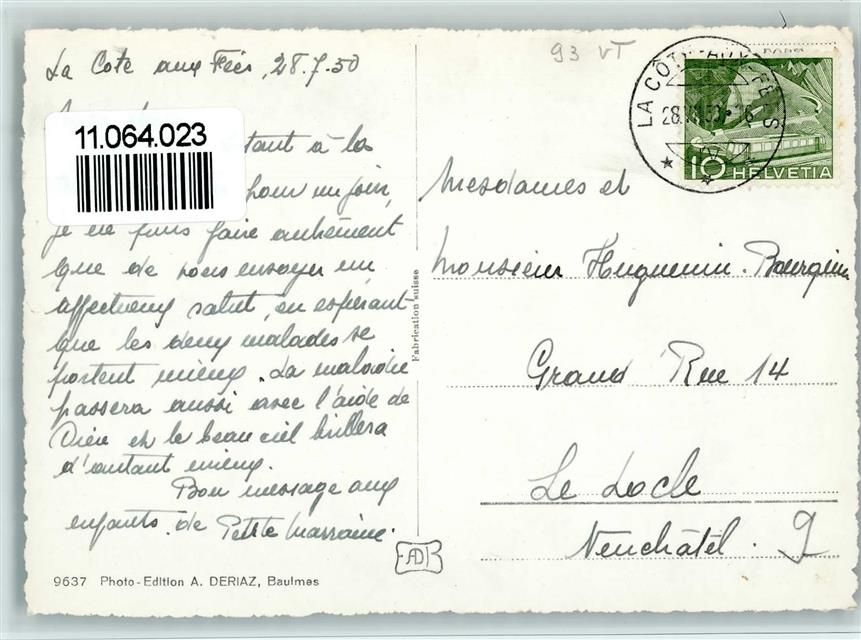 La Côte aux Fées, 28.7.50
11.064.023
étant à la
pour un join,
je ne puis faire autrement
que de vous envoyer un
affectueux salut, en espérant
que les deux malades se
portent mieux. La maladie
passera aussi avec l'aide de
Dieu et le beau ciel brillera
d'autant mieux.
Bon message aux
enfants. de Petite Marraine.
9637 Photo-Edition A. DERIAZ, Baulmes
Fabrication suisse
93 VT
LA CÔTE-AUX-FÉES
10 HELVETIA
Mesdames et
Monsieur Huguenin-Bourquin
Grand Rue 14
Le Locle
Neuchâtel. 9